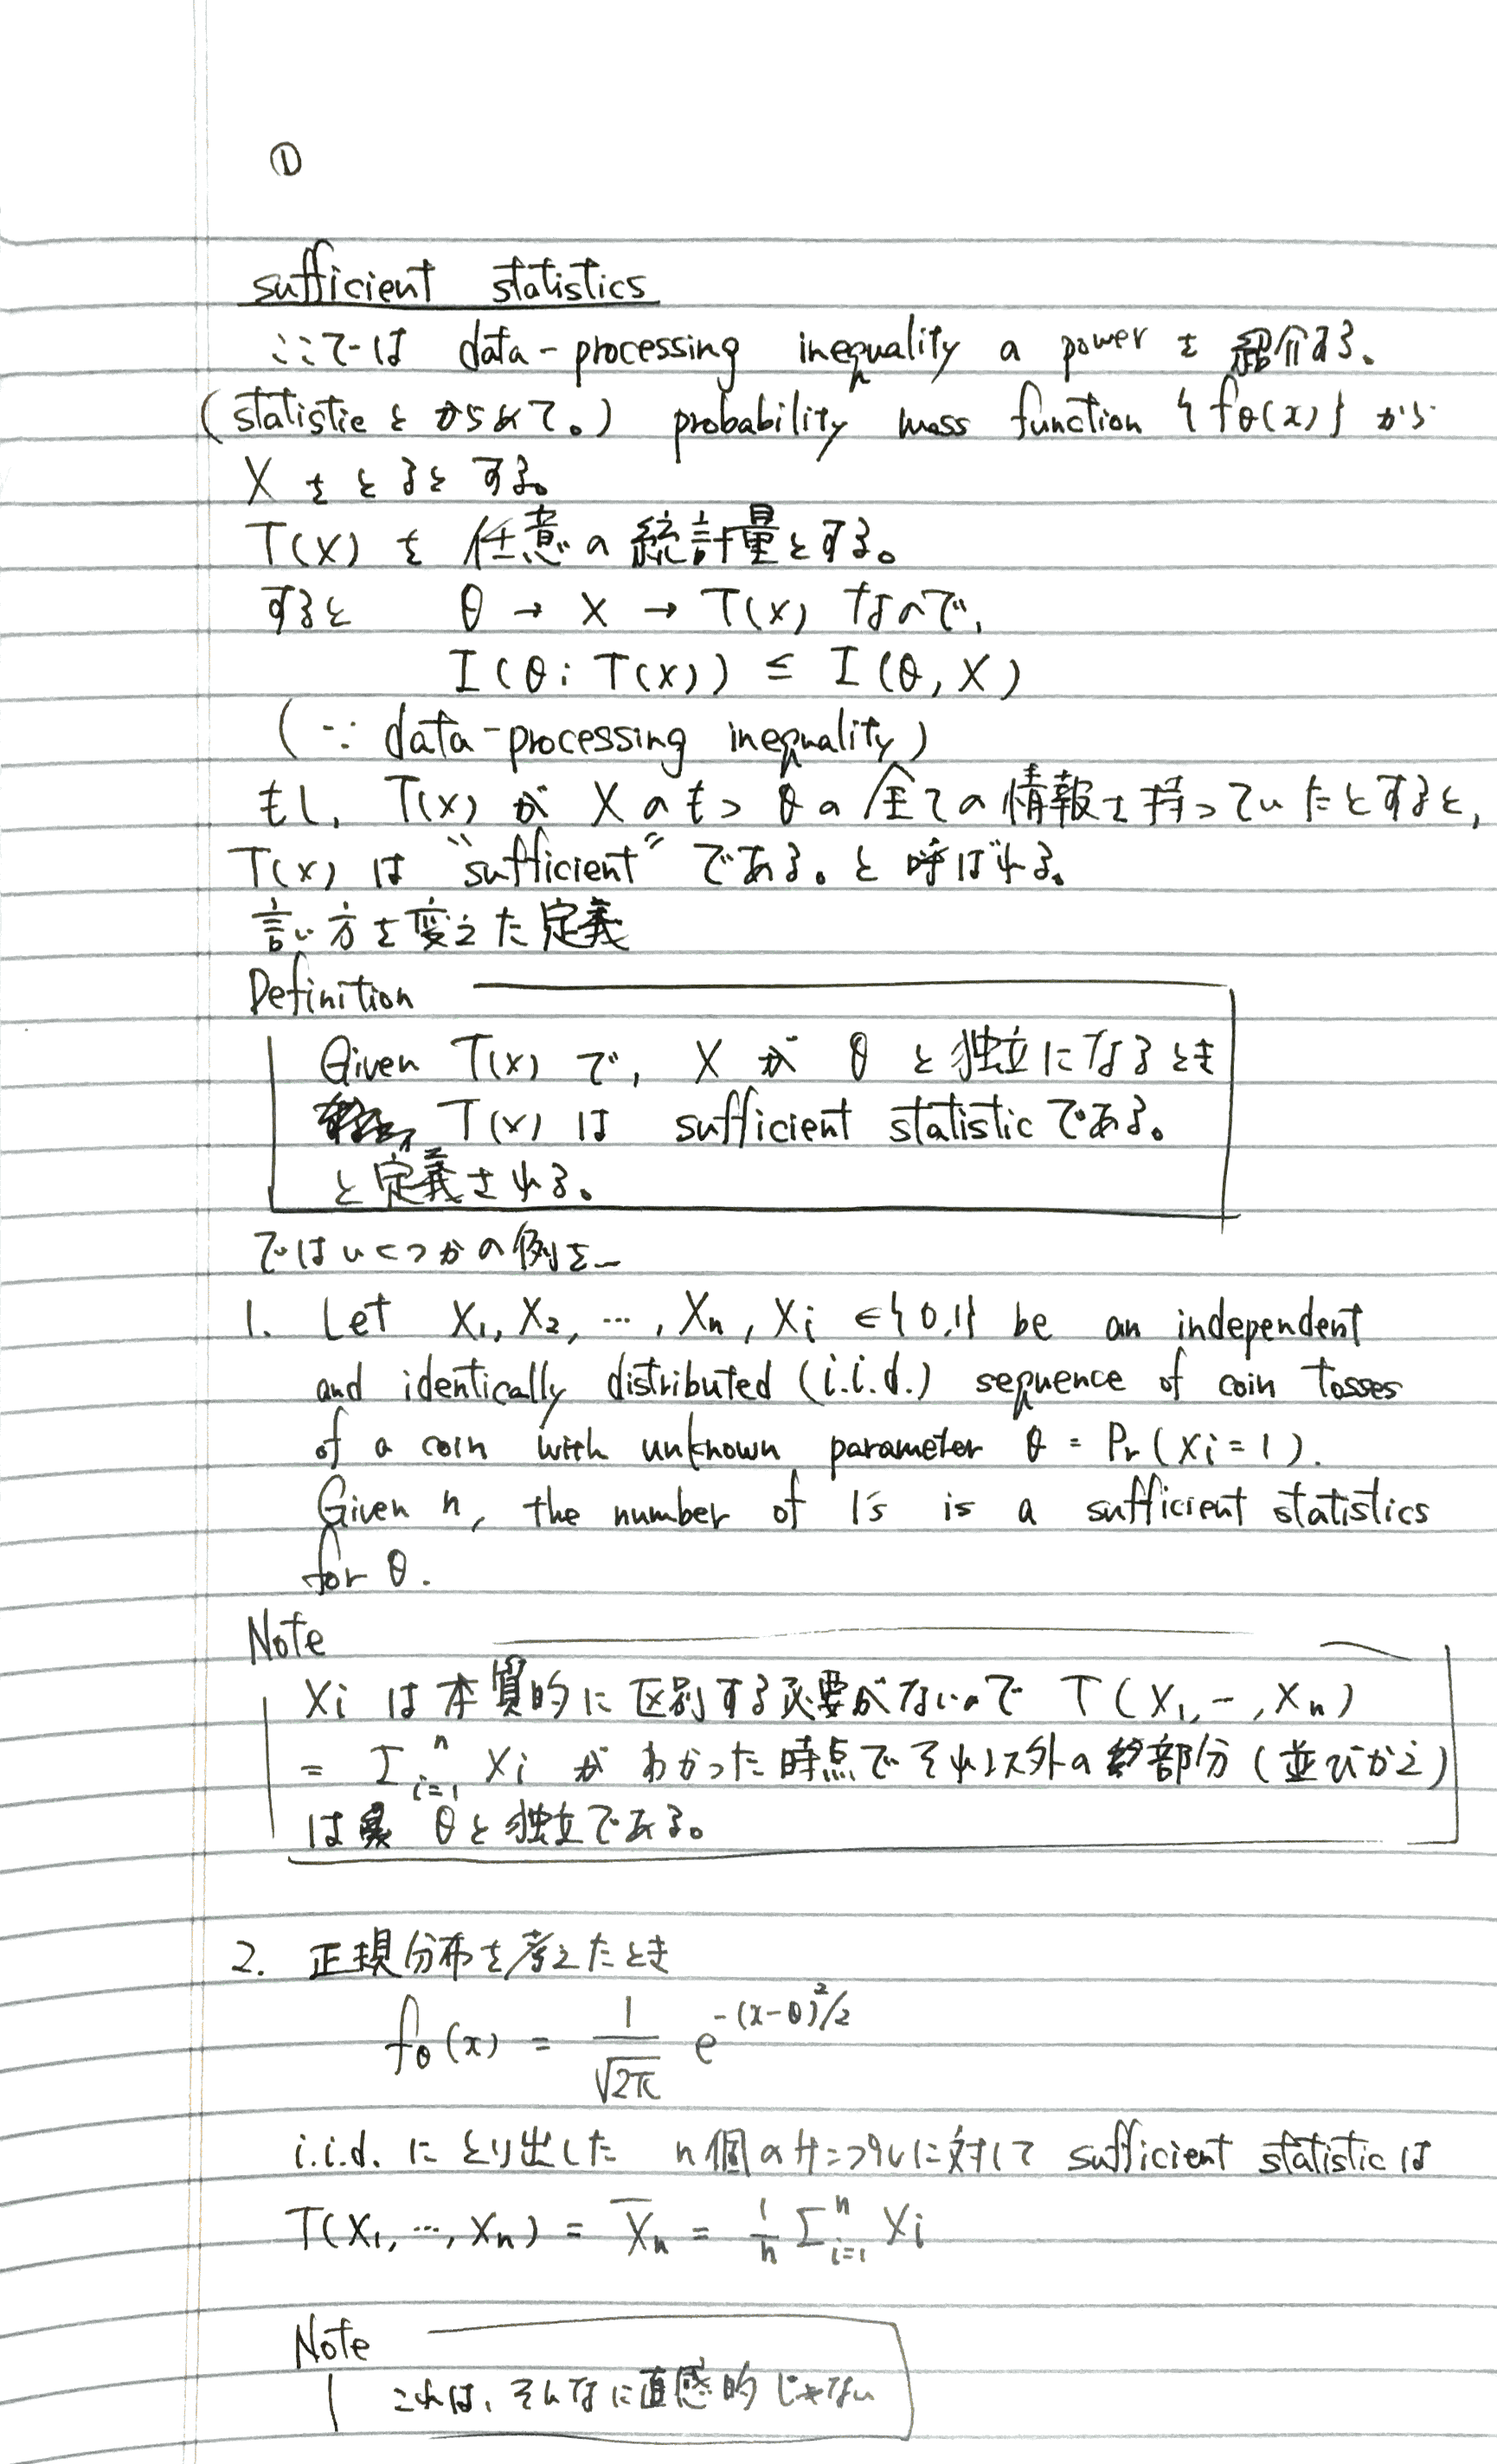 ①
sufficient statistics
ここでは data-processing inequality の power を 紹介する。
(statisticとからめて。) probability mass function {fθ(x)} から
X をとるとする。
T(X) を 任意の統計量とする。
すると θ → X → T(X) なので、
I(θ; T(X)) ≤ I(θ, X)
(∵ data-processing inequality)
もし、T(X) が X のもつ θの全ての情報を持っていたとすると、
T(X) は "sufficient" である。と呼ばれる。
言い方を変えた定義
Definition
Given T(X) で, X が θ と独立になるとき
T(X) は sufficient statistic である。
と定義される。
ではいくつかの例を_
1. Let X₁, X₂, …, Xn, Xi ∈{0,1} be an independent
and identically distributed (i.i.d.) sequence of coin tosses
of a coin with unknown parameter θ = Pr(Xi=1).
Given n, the number of 1's is a sufficient statistics
for θ.
Note
Xi は本質的に区別する必要がないので T(X₁, –, Xn)
= Σⁿᵢ₌₁ Xi がわかった時点でそれ以外の部分(並びかえ)
は θと独立である。
2. 正規分布を考えたとき
fθ(x) = 1/√2π e^-(x-θ)²/2
i.i.d. にとり出した n個のサンプルに対して sufficient statistic は
T(X₁, …, Xn) = X̄n = 1/n Σⁿᵢ₌₁ Xi
Note
これは、そんなに直感的じゃない